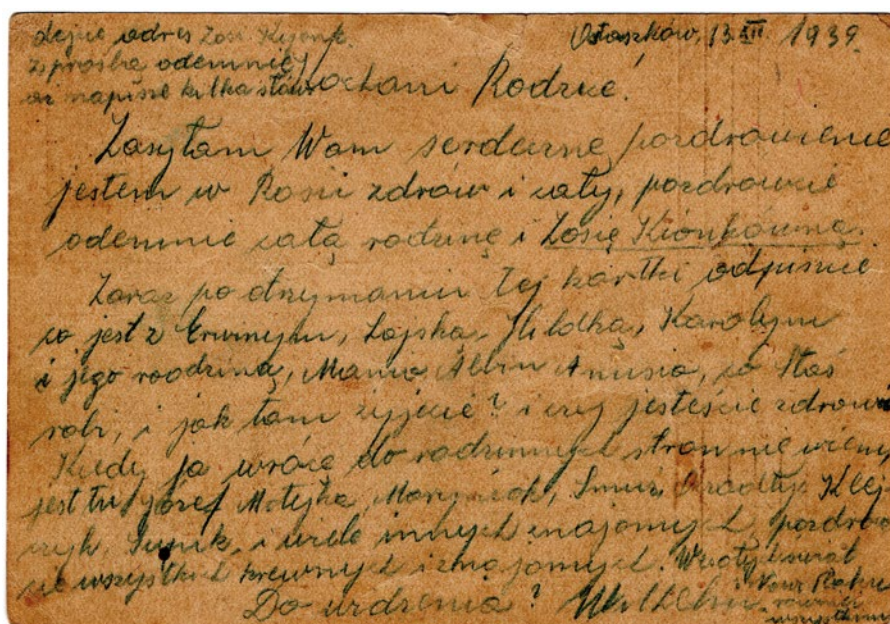 dajcie adres Zosi Kijonk.
z prośbą odemnie
aż napisze kilka słów
Ostaszków, 13 XII 1939.
Kochani Rodzice!
Zasyłam Wam serdeczne pozdrowienie
jestem w Rosii zdrów i cały, pozdrowcie
odemnie całą rodzinę i Zosię Kionkównę.
Zaraz po otrzymaniu tej kartki odpiszcie
co jest z Erwinym, Lojską, Hildką, Karolym
i jego roodziną, Mania Albin Anusia, co Staś
robi, i jak tam żyjecie? i czy jesteście zdrowi
Kiedy ja wrócę do rodzinnych stron nie wiem,
jest tu Józef Motyka, i Klej
czyk, i wiele innych znajomych, pozdrow
cie wszystkich krewnych i znajomych. świąt
Do widzenia! Wilhelm
Now. Roku
również
wszystkim